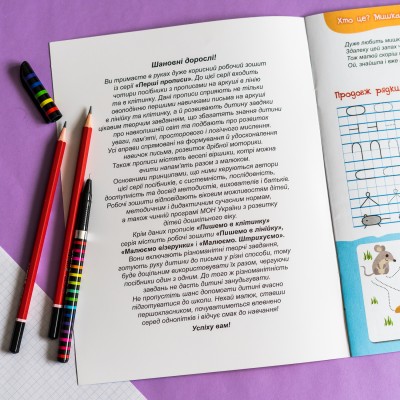 Шановні дорослі!
Ви тримаєте в руках дуже корисний робочий зошит
із серії «Перші прописи». До цієї серії входить
чотири посібники з прописами на аркуші в лінію
та в клітинку. Дані прописи сприяють не тільки
оволодінню першими навичками письма на аркуші
в лінійку та клітинку, а й розвивають дитину завдяки
цікавим творчим завданням, що збагатять знання дитини
про навколишній світ та подбають про розвиток
уваги, пам'яті, просторового і логічного мислення.
Усі вправи спрямовані на формування й удосконалення
навичок письма, розвиток дрібної моторики.
Також прописи містять веселі віршики, котрі можна
вчити напам'ять разом з малюком.
Основними принципами, що ними керуються автори
цієї серії посібників, є системність, послідовність,
доступність та досвід методистів, вихователів і батьків.
Робочі зошити відповідають віковим можливостям дітей,
методичним і дидактичним сучасним нормам,
в також чинній програмі МОН України з розвитку
дітей дошкільного віку.
Крім даних прописів «Пишемо в клітинку»
серія містить робочі зошити «Пишемо в лінійку»,
«Малюємо візерунки» і «Малюємо. Штрихуємо».
Вони включають різноманітні творчі завдання,
готують руку дитини до письма у різні способи, тому
буде доцільним використовувати їх разом, чергуючи
посібники один з одним. До того ж різноманітність
завдань не дасть дитині занудьгувати.
Не пропустіть шанс допомогти дитині вчасно
підготуватися до школи. Нехай малюк, ставши
першокласником, почуватиметься впевнено
серед однолітків і відчує смак до навчання!
Успіху вам!
Хто це? Мишка
Дуже любить мишка
Здалеку цей запах
Тож малей скоріш
Ой, знайшла і вже
Продовж рядки